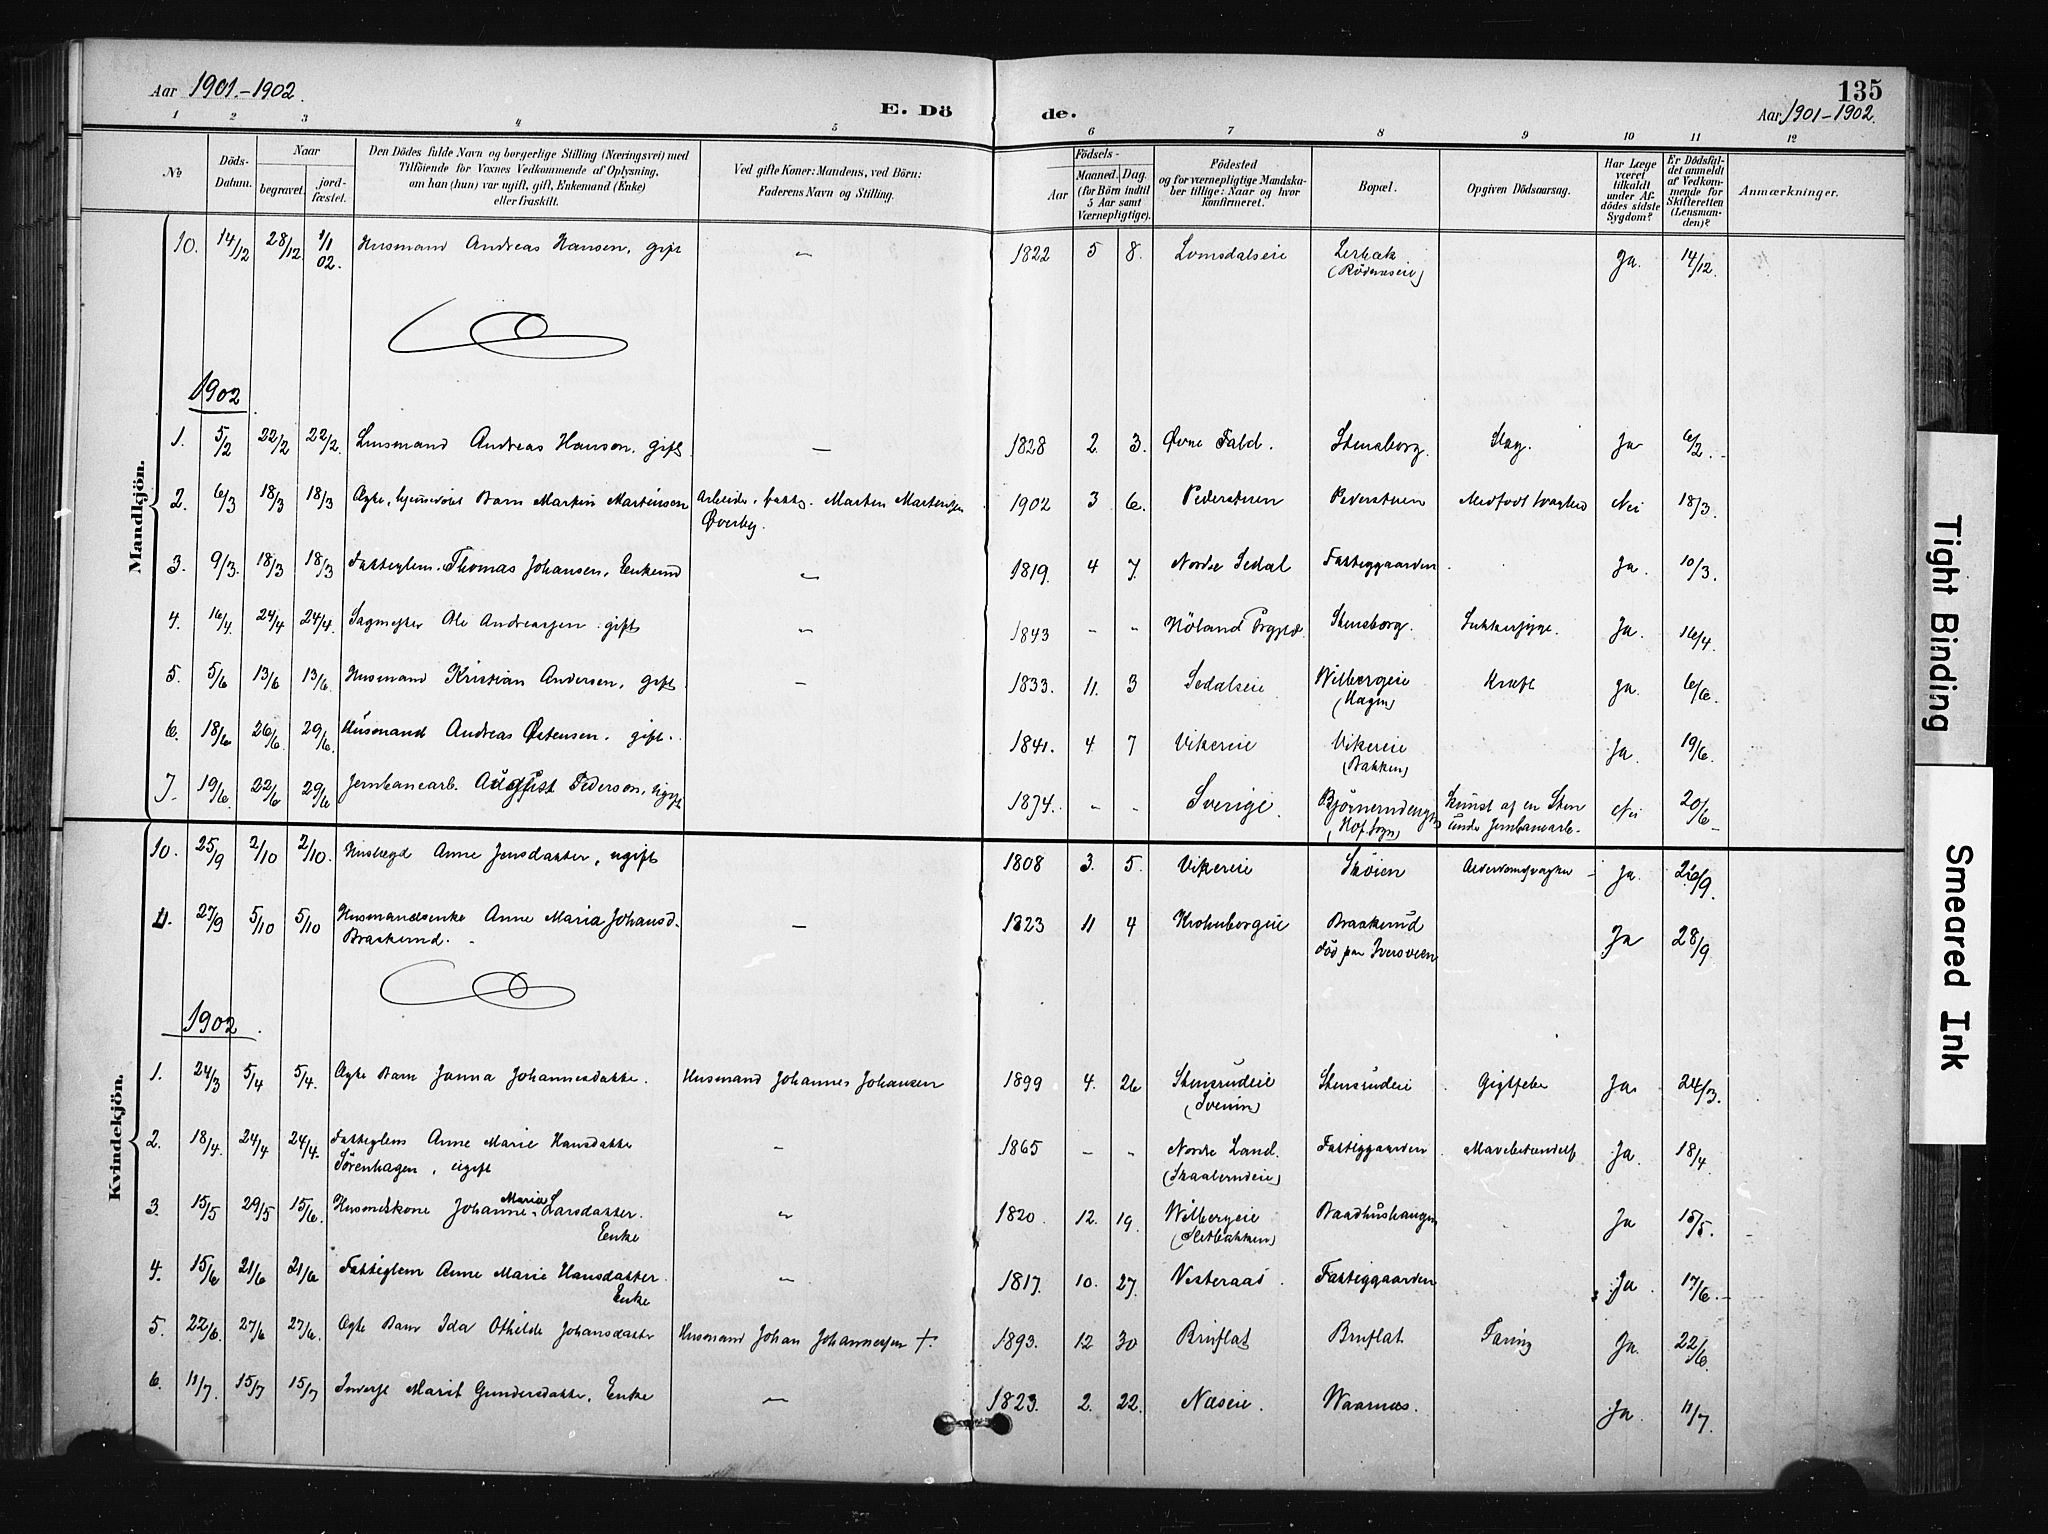 Aar 1901.-1902.
E. Dö de.
135
Aar 1901-1902.
1 2 3 4 5 6 7 8 9 10 11 12
No
Döds-Datum.
Naar
begravet.
jord-fæstet.
Den Dödes fulde Navn og borgerlige Stilling (Næringsvei) med
Tilföiende for Voxnes Vedkommende af Oplysning,
om han (hun) var ugift, gift, Enkemand (Enke)
eller fraskilt.
Ved gifte Koner: Mandens, ved Börn:
Faderens Navn og Stilling.
Födsels-
Aar
Maaned. Dag.
(for Börn indtil
5 Aar samt
Værnepligtige).
Födested
og for værnepligtige Mandska-
ber tillige: Naar og hvor
konfirmeret.
Bopæl.
Opgiven Dödsaarsag.
Har Læge
været
tilkaldt
under Af-
dödes sidste
Sygdom?
Er Dödsfal-
det anmeldt
af Vedkom-
mende for
Skifteretten
(Lensman-
den)?
Anmærkninger.
Mandkjön.
10. 14/12 28/12 1/1 02. Husmand Andreas Hansen, gift 1822 5 8. Lomsdalseie Lerbæk Ja. 14/12.
1902
1. 5/2 22/2 22/2. Andreas Hanson, gift. 1828 2. 3. Øvre Fald. Stensborg. Slag. Ja 6/2.
2. 6/3 18/3 18/3 Ægte, hjemmedöbt Barn Martin Martinson Martin
Øverby. 1902 3 6. Pederstuen Pederstuen Medfödt Svaghed Nei 18/3.
3. 9/3. 18/3 18/3 Fattiglem. Thomas Johansen, Enkemd 1819. 4 7. Nordre Sedal Fattiggaarden Ja. 10/3.
4. 16/4. 24/4 24/4. Sagmester Ole Andreassen gift 1843 - - Höland Stensborg. Sukkersyge. Ja. 16/4
5. 5/6 13/6 13/6. Husmand Kristian Andersen, gift. 1833. 11. 3 Sedalseie Wilbergeie
(Hagen) Kræft Ja. 6/6.
6. 18/6 26/6. 29/6. Husmand Andreas Østensen. gift. 1841. 4 7 Vikereie Vikereie
(Bakken) Ja 19/6.
7. 19/6. 22/6 29/6 Jernbanearb. August Pederson, ugift 1874. - - Sverige.
(Hof Sogn) af en Sten
under Jernbanearb. Nei 20/6
Kvindekjön.
10. 25/9 2/10 2/10. Anne Jensdatter, ugift 1808 3. 5. Vikereie Skøien Ja. 26/9.
11. 27/9 5/10 5/10 Husmandsenke Anne Maria Johansd.
Braakerud. 1823 11 4 Krohnborgeie Braakerud
död paa Iversveen Ja 28/9
1902
1. 24/3 5/4 5/4. Ægte Barn Janna Johannesdatte. Husmand Johannes Johansen 1899 4. 26 Stensrudeie
(Sveum) Stensrudeie Gigtfeber Ja. 24/3.
2. 18/4. 24/4 24/4. Fattiglem Anne Marie Hansdatte
Sörenhagen, ugift 1865 - - Nordre Land.
(Skaalerudeie) Fattiggaarden Mavebetændelse Ja. 18/4
3. 15/5 29/5 15/6. Husmdskone Johanne Marie Larsdatter.
Enke 1820. 12. 19. Wilbergeie
(Sletbakken) Baadhushaugen Ja 15/5.
4. 15/6 21/6 21/6 Fattiglem Anne Marie Hansdatter
Enke 1817. 10. 27. Vesteraas Fattiggaarden Ja 17/6.
5. 22/6. 27/6 27/6 Ægte Barn Ida Othilde Johansdatter Husmand Johan Johannessen +. 1893. 12 30 Bruflat Bruflat Tæring Ja. 22/6.
6. 11/7. 15/7 15/7 Inderst Marit Gundersdatte, Enke 1823. 2. 22. Næseie. Waarnæs. Ja. 11/7.
Tight Binding
Smeared Ink